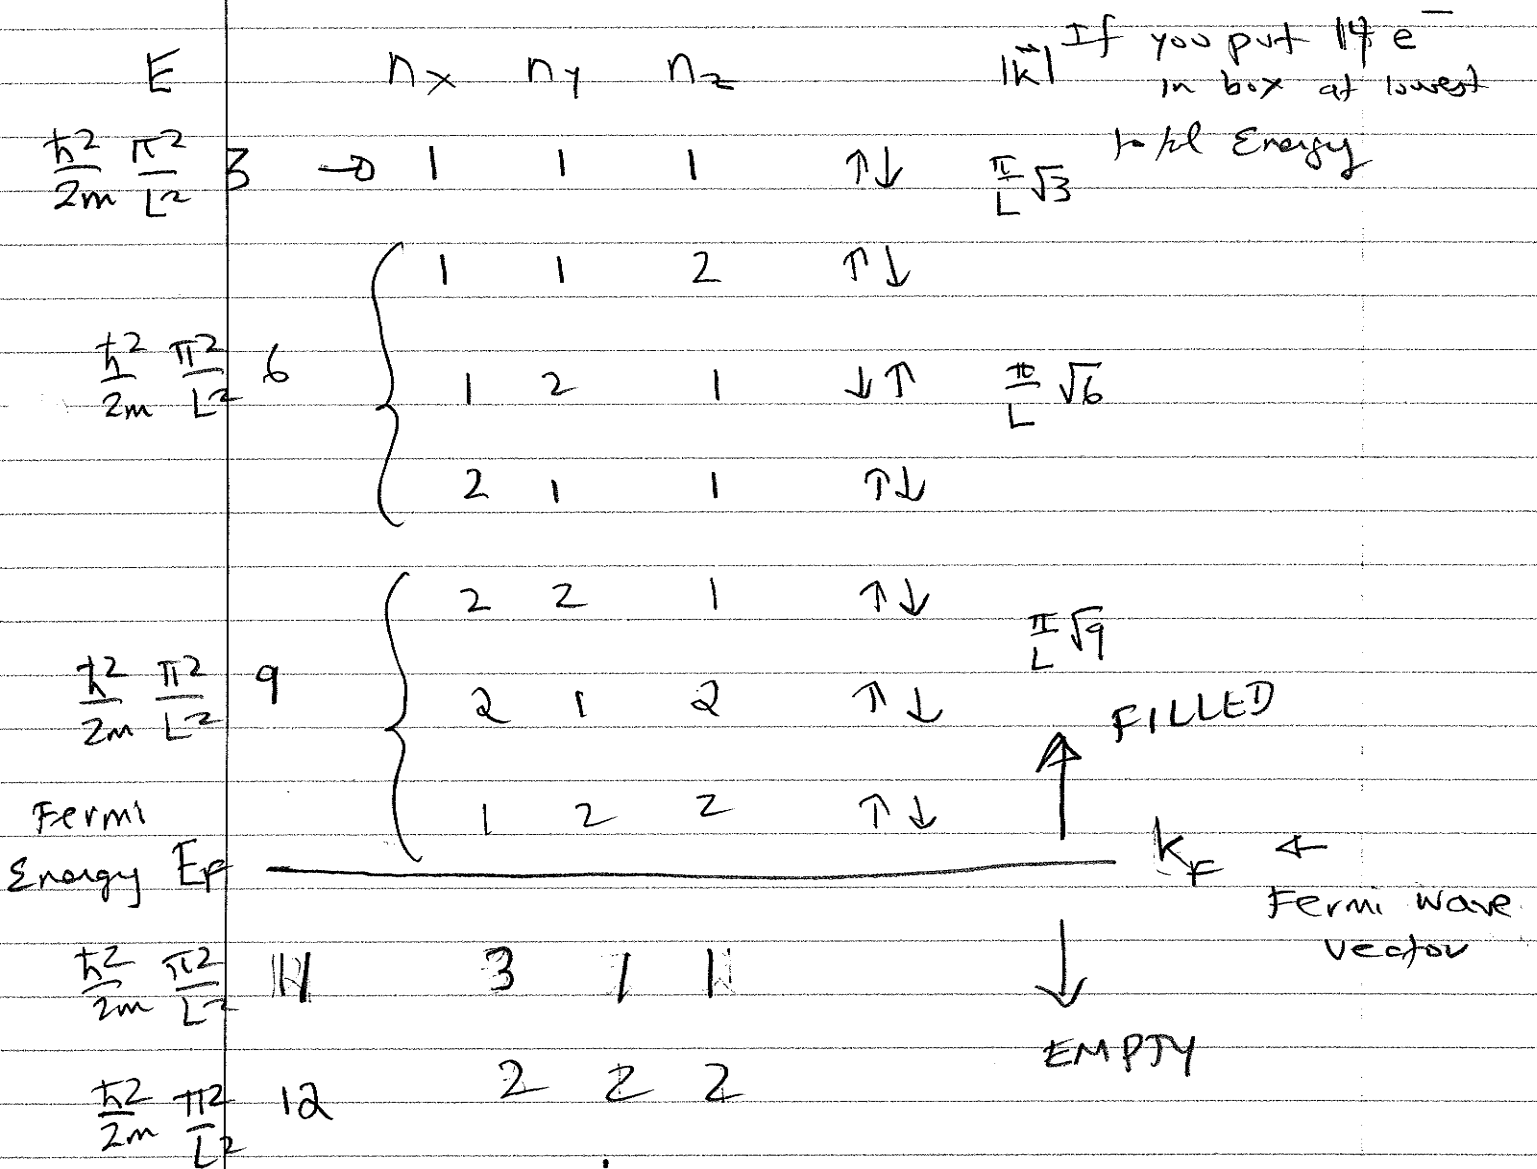 E n_x n_y n_z |k⃗| If you put 14 e⁻
in box at lowest
total Energy
ħ²/2m π²/L² 3 → 1 1 1 ↑↓ π/L √3
1 1 2 ↑↓
ħ²/2m π²/L² 6 1 2 1 ↓↑ π/L √6
2 1 1 ↑↓
2 2 1 ↑↓ π/L √9
ħ²/2m π²/L² 9 2 1 2 ↑↓
FILLED
1 2 2 ↑↓
Fermi
Energy E_F k_F ←
Fermi wave
vector
ħ²/2m π²/L² 11 3 1 1
EMPTY
ħ²/2m π²/L² 12 2 2 2